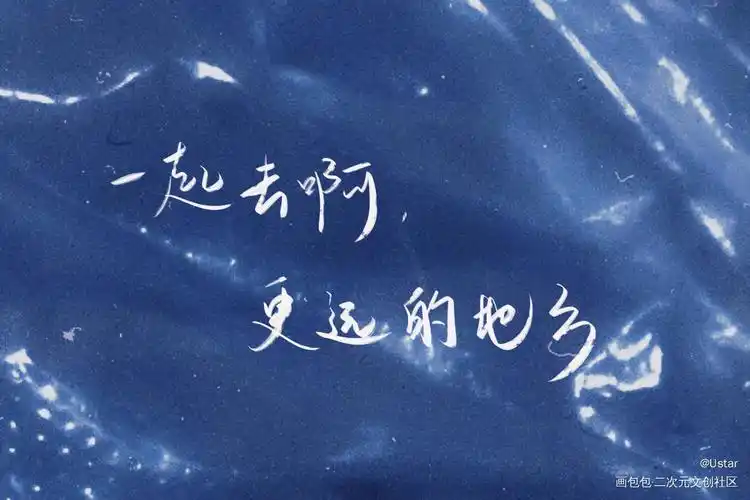 一起去啊,
更远的地方
@Ustar
画包包·二次元文创社区